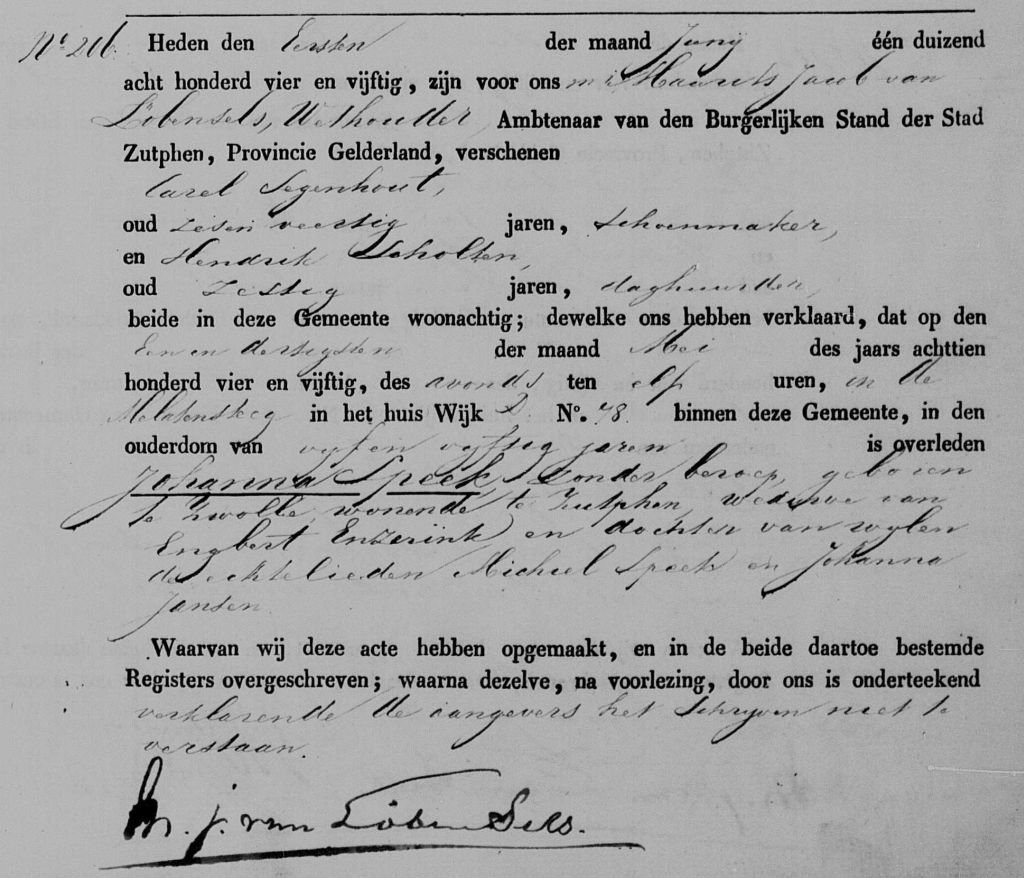 No. 216. Heden den Eersten der maand Junij één duizend
acht honderd vier en vijftig, zijn voor ons mr. Maurits Jacob van
Löbensels, Wethouder, Ambtenaar van den Burgerlijken Stand der Stad
Zutphen, Provincie Gelderland, verschenen
Carel Segenhout,
oud zesen veertig jaren, schoenmaker,
en Hendrik Scholten,
oud zestig jaren, daghuurder,
beide in deze Gemeente woonachtig; dewelke ons hebben verklaard, dat op den
Een en dertigsten der maand Mei des jaars achttien
honderd vier en vijftig, des avonds ten elf uren, in de
in het huis Wijk D. No. 78. binnen deze Gemeente, in den
ouderdom van vijf en vijftig jaren is overleden
Johanna Speek, zonder beroep, geboren
te Zwolle, wonende te Zutphen, weduwe van
Engbert Enzerink, en dochter van wylen
de echtelieden Michiel Speek en Johanna
Jansen.
Waarvan wij deze acte hebben opgemaakt, en in de beide daartoe bestemde
Registers overgeschreven; waarna dezelve, na voorlezing, door ons is onderteekend
verklarende de aangevers het schryven niet te
verstaan.
M. J. van Löben Sels.